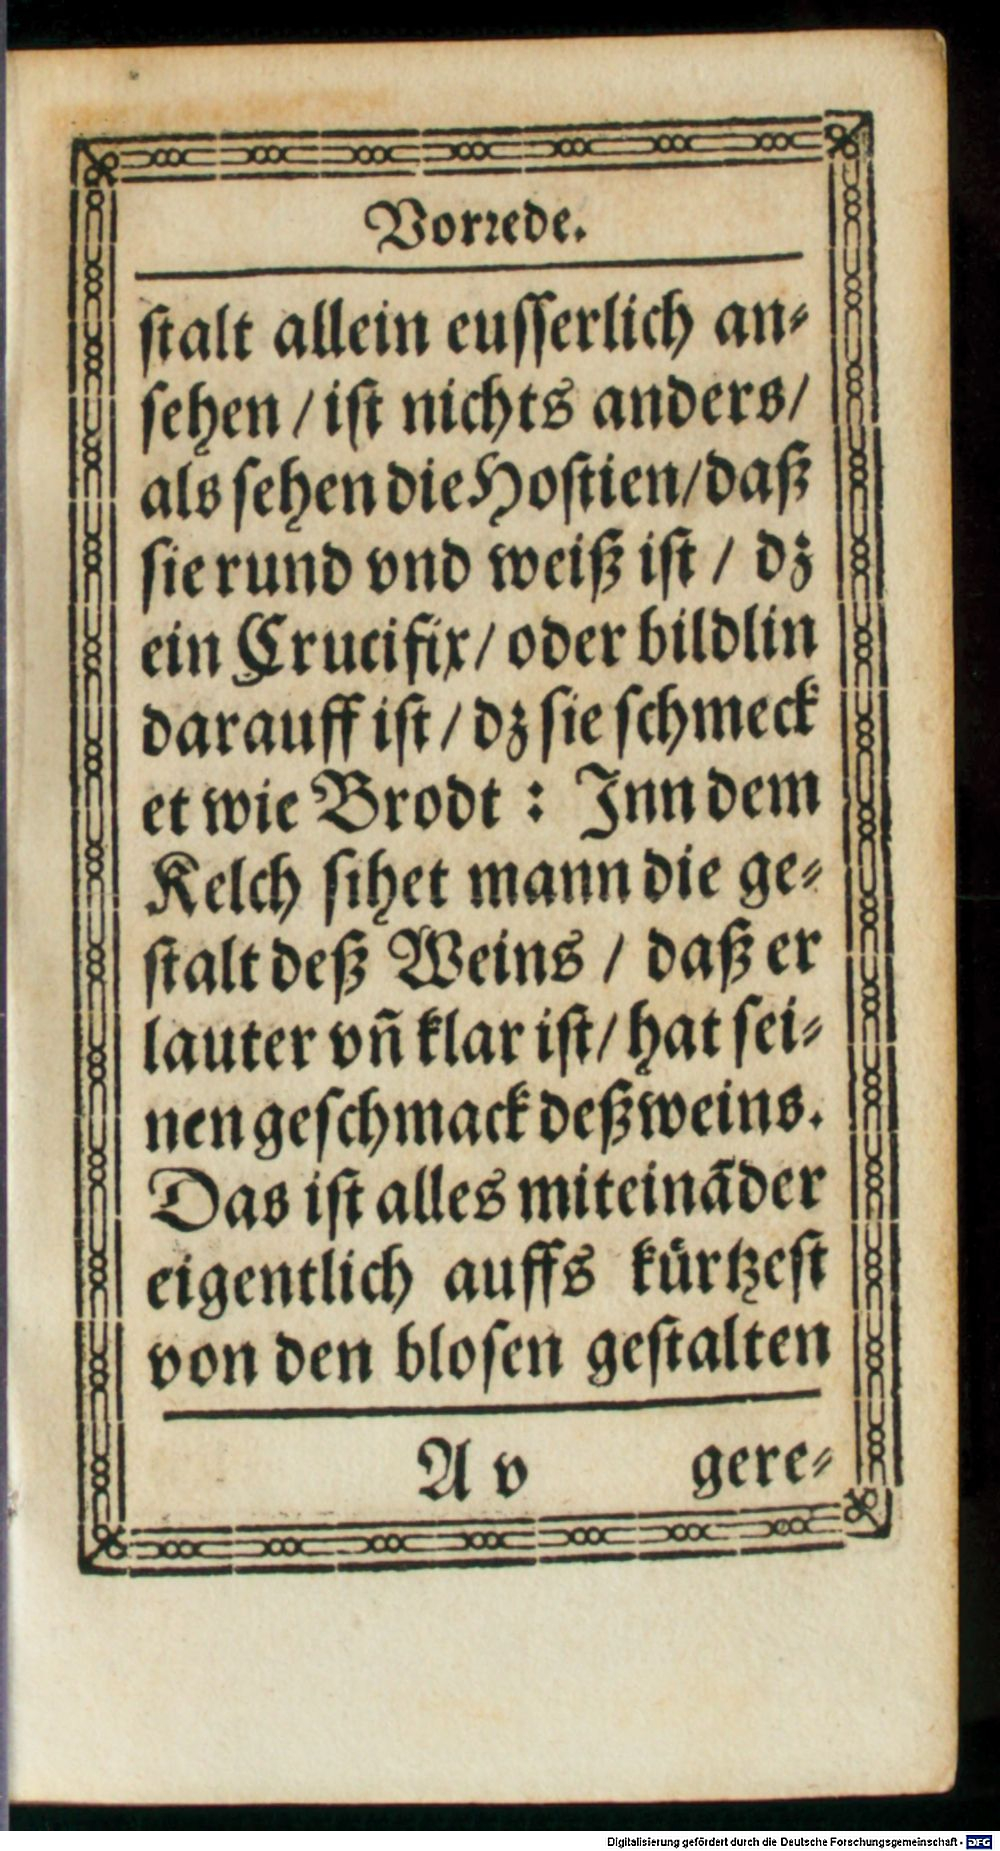 Vorꝛede.
ſtalt allein euſſerlich an⸗
ſehen / iſt nichts anders /
als ſehen die Hoſtien / daß
ſie rund vnd weiß iſt / dz
ein Crucifix / oder bildlin
darauff iſt / dz ſie ſchmeck
et wie Brodt : Inn dem
Kelch ſihet mann die ge⸗
ſtalt deß Weins / daß er
lauter vñ klar iſt / hat ſei⸗
nen geſchmack deß weins.
Das iſt alles miteinãder
eigentlich auffs kürtzeſt
von den bloſen geſtalten
A v gere⸗
Digitalisierung gefördert durch die Deutsche Forschungsgemeinschaft - DFG